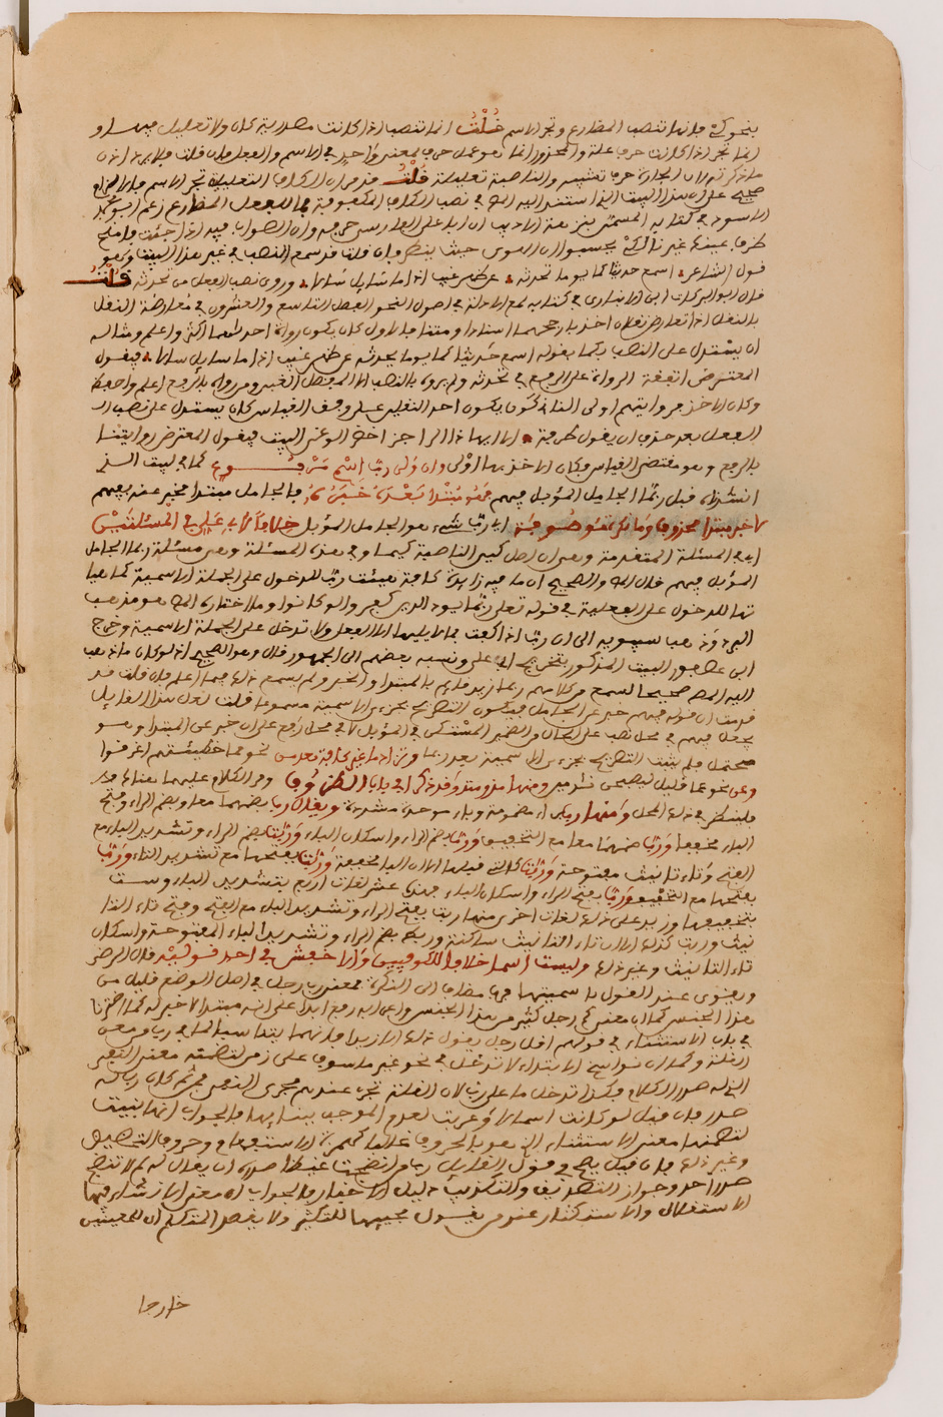 بنحو كي فإنها تنصب المضارع وتجر الاسم قُلْتُ انما تنصب اذا كانت مصدرية كان ولا تعليل فيها و
انما تجر اذا كانت حرف علة والمجرور انما هو عمل حرف بمعنى واحد في الاسم والفعل فان قلت فلا يرد اذن
ما ذكرته لان الجارة حرف تشبيه والناصبة تعليلية قُلْتُ قد مر ان الكاف التعليلية تجر الاسم
صحيح على ان هذا البيت الذي استند اليه في نصب الكاف المكفوفة بما للفعل المضارع زعم ابو محمد
الاسود في كتابه المسمى بنزهة الاديب ان ابا علي الفارسي حرفه وان الصواب فيه اذا جئت فامنح
طرف عينيك غيرنا لكي يحسبوا ان الهوى حيث تنظر فان قلت قد سمع النصب في غير هذا البيت وهو
قول الشاعر اسمع حديثا كما يوما تحدثه عن ظهر غيب اذا ما سائل سالا وروي نصب الفعل من تحدثه قلت
قال ابو البركات ابن الانباري في كتابه لمع الادلة في اصول النحو الفصل التاسع والعشرون في معارضة النقل
بالنقل اذا تعارض نقلان اخذ بارجحهما اسنادا ومتنا فالاول كان يكون رواة احدهما اكثر واعلم ومثاله
ان يستدل على النصب بكما بقوله اسمع حديثا كما يوما يحدثه عن ظهر غيب اذا ما سائل سالا فيقول
المعترض اتفقت الرواة على الرفع في تحدثه ولم يروه بالنصب الا المفضل الضبي ومن رواه بالرفع اعلم واحفظ
وكان الاخذ بروايتهم اولى الثاني كون يكون احد النقلين على وفق القياس كان يستدل على نصب
الفعل بعد حذف ان بقول طرفة الا ايها ذا الزاجري احضر الوغى البيت فيقول المعترض روايتنا
بالرفع وهو مقتضى القياس فكان الاخذ بها اولى وان ولي ربما اسم مرفوع كما في البيت الذي
انشدناه قبل ربما الجامل المؤبل فيهم فهو مبتدأ بعده خبره فالجامل مبتدأ مخبر عنه بفيهم
لا خبر مبتدأ محذوف وما نكرة موصوفة اي رب شيء هو الجامل المؤبل خلافا لابي علي في المسئلتين
اي في المسئلة المتقدمة وهي ان اصل كما الناصبة كيما وفي هذه المسئلة وهي مسئلة ربما الجامل
المؤبل فيهم قال والصحيح ان ما فيه زايدة كافة هيئت رب للدخول على الجملة الاسمية كما هيا
تها للدخول على الفعلية في قوله تعلى ربما يود الذين كفروا لو كانوا وما اختاره هو مذهب
المبرد وذهب سيبويه الى ان رب اذا كفت بما لا يليها الا الفعل ولا تدخل على الجملة الاسمية وخرج
ابن عصفور البيت المذكور بتخريج ابي علي ونسبه بعضهم الى الجمهور قال وهو الصحيح اذ لو كان ما ذهب
اليه صحيحا لسمع من كلامهم ربما زيد قايم بالمبتدا والخبر ولم يسمع ذلك فيما اعلم فان قلت قد
قدمت ان قوله فيهم خبر عن الجامل فيكون التصريح بجزءي الاسمية مسموعا قلت لعل هذا القايل
يجعل فيهم في محل نصب على الحال من الضمير المستكن في المؤبل لا في محل رفع على ان خبر عن المبتدا وهو
محتمل فلم يثبت التصريح بجزءي الاسمية بعد ربما وتزاد ما غير كافة بعد من نحو مما خطيئتهم اغرقوا
وعن نحو عما قليل ليصبحن نادمين ومنها مذ ومنذ وقد ذكرا في باب الظروف ومر الكلام عليهما هناك
فلينظر في ذلك المحل ومنها رب براء مضمومة وباء موحدة مشددة ويقال رب بضمهما معا وبضم الراء وفتح
الباء مخففا ورب بضمهما معا مع التخفيف ورب بضم الراء واسكان الباء وربت بضم الراء وتشديد الباء مع
الفتح وتاء تانيث مفتوحة وربت كالتي قبلها الا ان الباء مخففة وربت بفتحهما مع تشديد الباء ورب
بفتحهما مع التخفيف ورب بفتح الراء واسكان الباء فهذه عشر لغات اربع بتشديد الباء وست
بتخفيفها وزيد على ذلك لغات اخرى منها ربت بفتح الراء وتشديد الباء مع الفتح وفتح تاء التا
نيث وربت كذلك الا ان تاء التانيث ساكنة وربت بضم الراء وتشديد الباء المفتوحة واسكان
تاء التانيث وغير ذلك وليست اسما خلافا للكوفيين والاخفش في احد قوليه قال الرضي
ويقوى عندي القول باسميتها فرب مضاف الى النكرة فمعنى رب رجل في اصل الوضع قليل من
هذا الجنس كما ان معنى كم رجل كثير من هذا الجنس واعرابه رفع ابدا على انه مبتدا لا خبر له كما اخترنا
في باب الاستثناء في قولهم اقل رجل يقول ذلك الا زيد فانهما يتناسبان في رب من معنى
القلة وكما ان نواسخ الابتداء لا تدخل في نحو غير ماسوف على زمن لتضمنه معنى النفي
الذي له صدر الكلام فكذا لا تدخل ما على رب لان القلة تجري عندهم مجرى النفي فمن ثم كان رب له
صدر فان قيل لو كانت اسما لاعربت لعدم الموجب ببنايها فالجواب انها بنيت
لتضمنها معنى الاستثناء الذي هو بالحروف غالبا كهمزة الاستفهام وحروف التحضيض
وغير ذلك فان قيل يصح في قول القايل رب من انضجت غيظا صدره ان يقال له لم لا تنضج
صدر احد وجواز التصديق والتكذيب دليل الاخبار فالجواب ان معنى الانشاء فيها
الاستقلال والاستكثار عندمن يقول بمجيئها للتكثير ولا يقصد المتكلم ان للمعنيين
خارجا